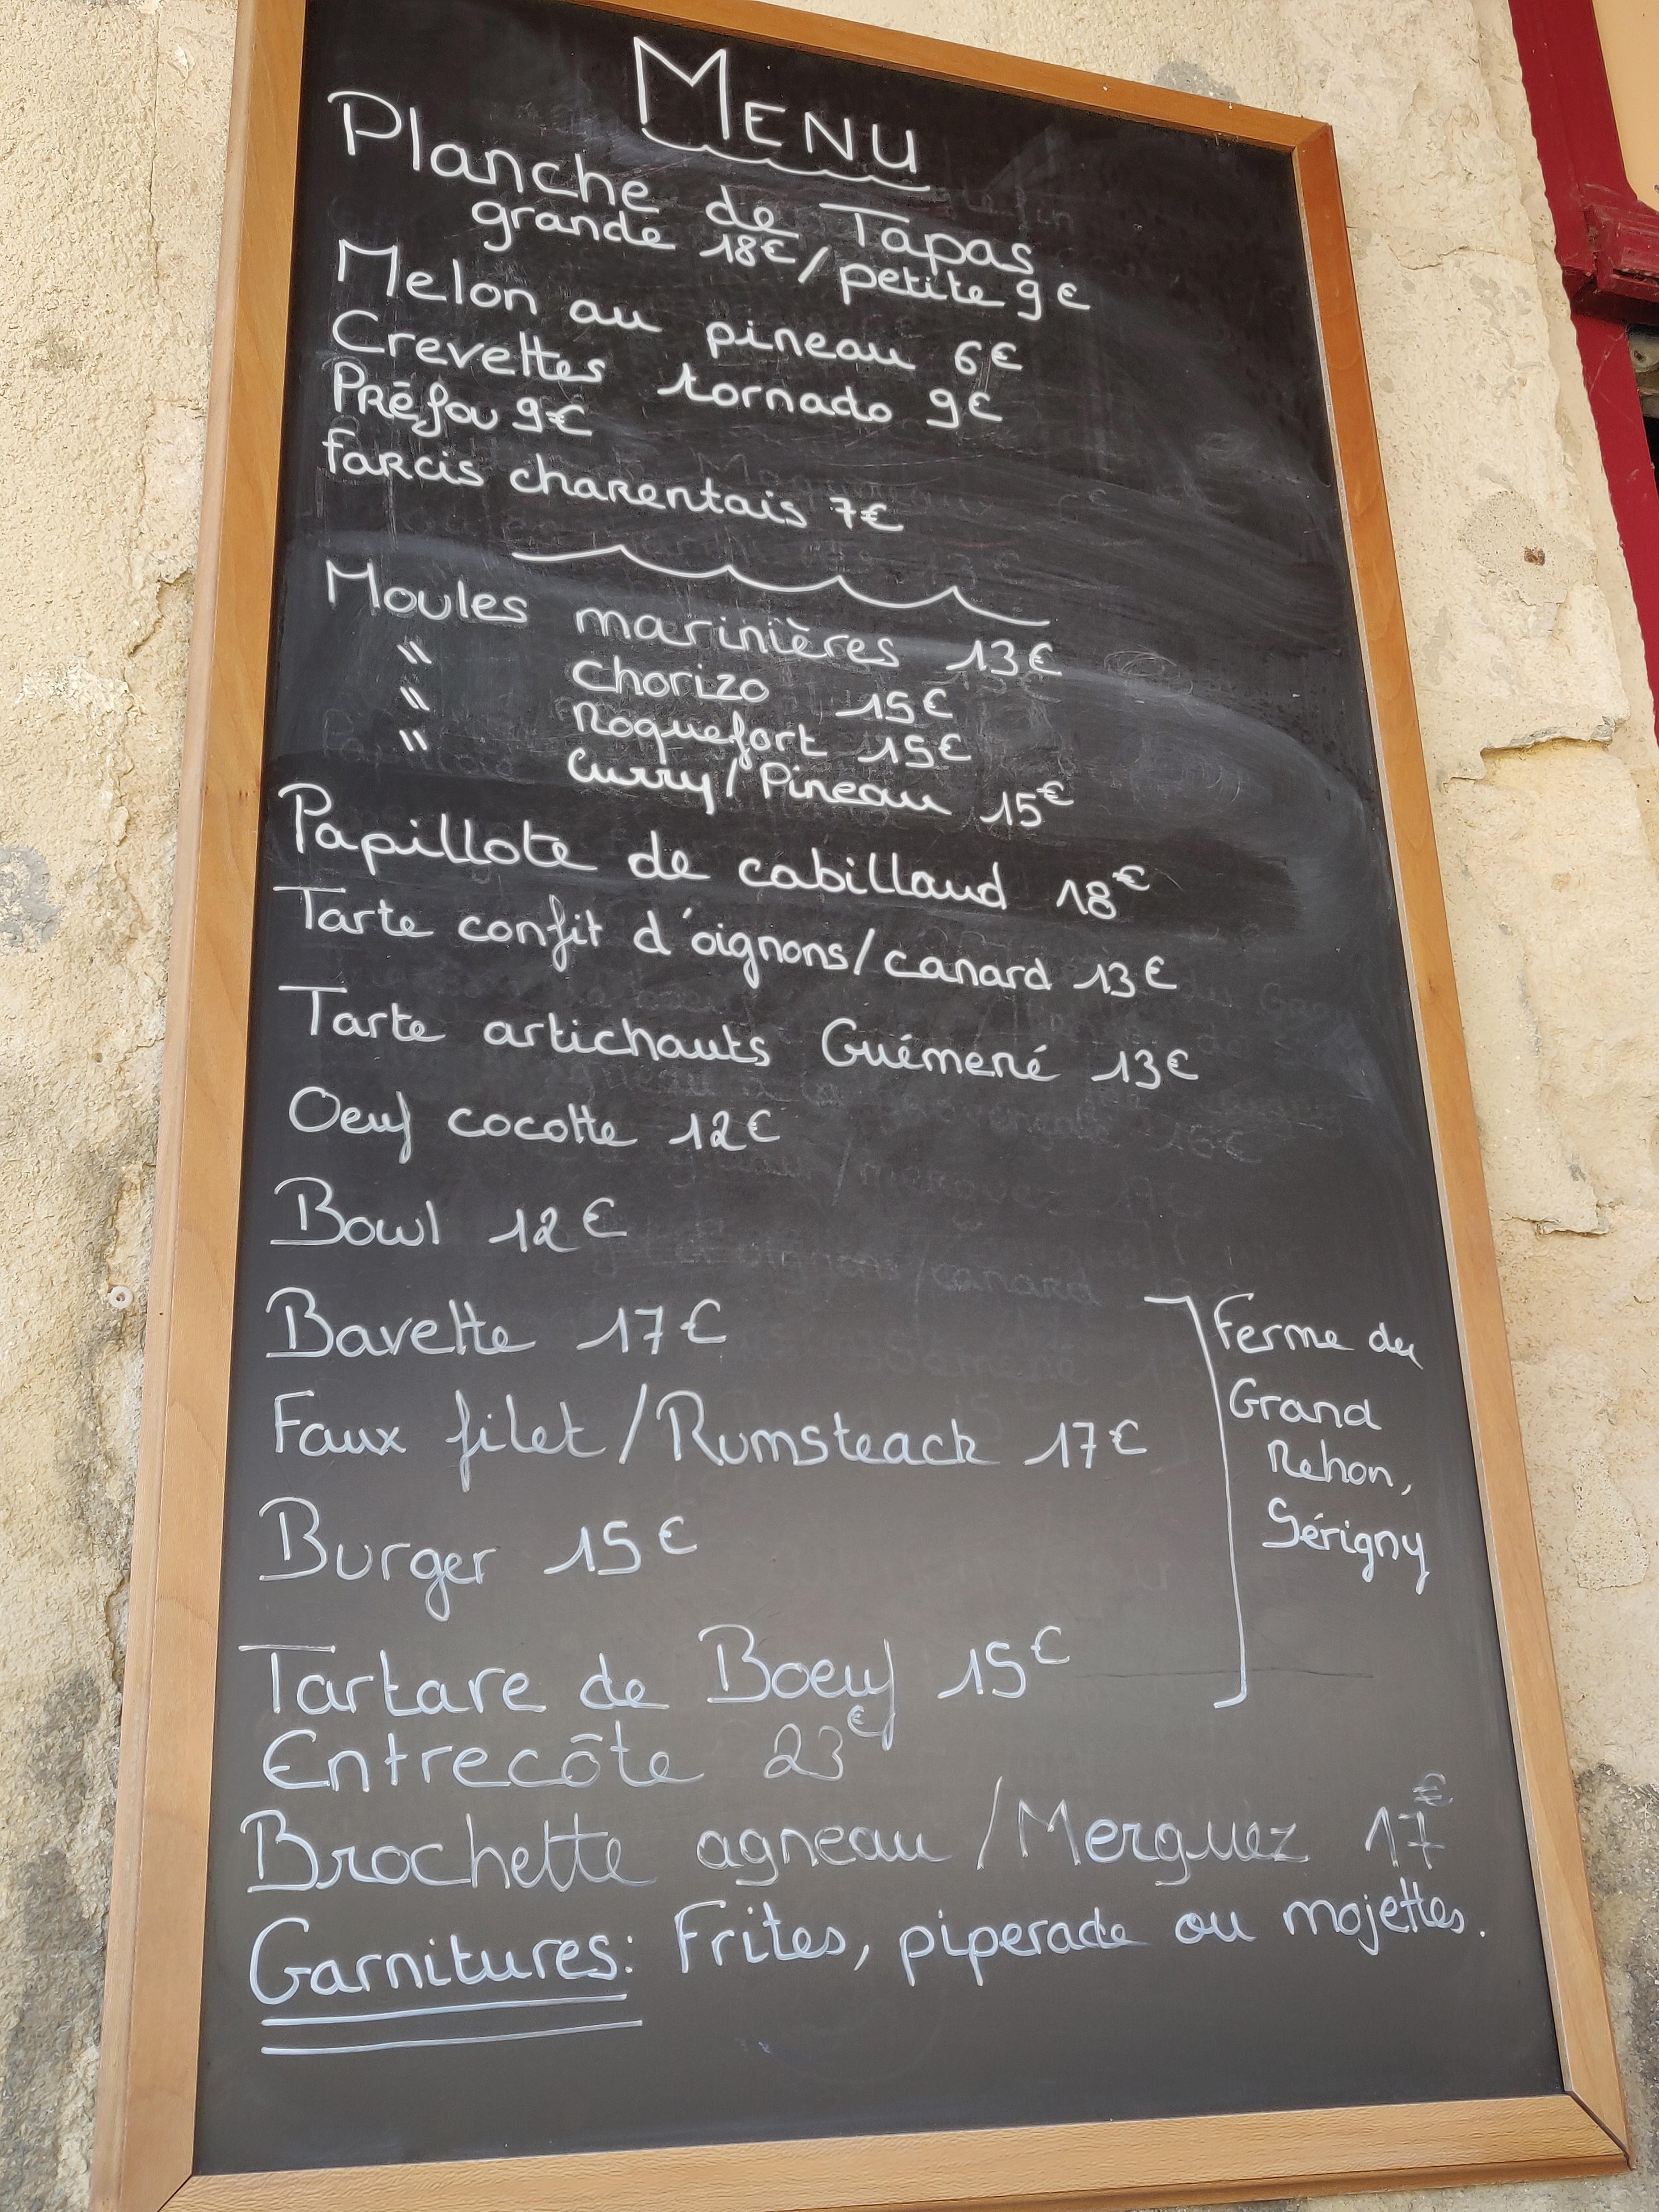 MENU
Planche de Tapas
grande 18€ / petite 9€
Melon au pineau 6€
Crevettes tornado 9€
Préfou 9€
Farcis charentais 7€
Moules marinières 13€
" chorizo 15€
" Roquefort 15€
" Curry / Pineau 15€
Papillote de cabillaud 18€
Tarte confit d'oignons / canard 13€
Tarte artichauts Guémené 13€
Oeuf cocotte 12€
Bowl 12€
Bavette 17€
Faux filet / Rumsteack 17€
Burger 15€
Tartare de Boeuf 15€
Ferme du
Grand
Rehon,
Sérigny
Entrecôte 23€
Brochette agneau / Merguez 17€
Garnitures: Frites, piperade ou mojettes.